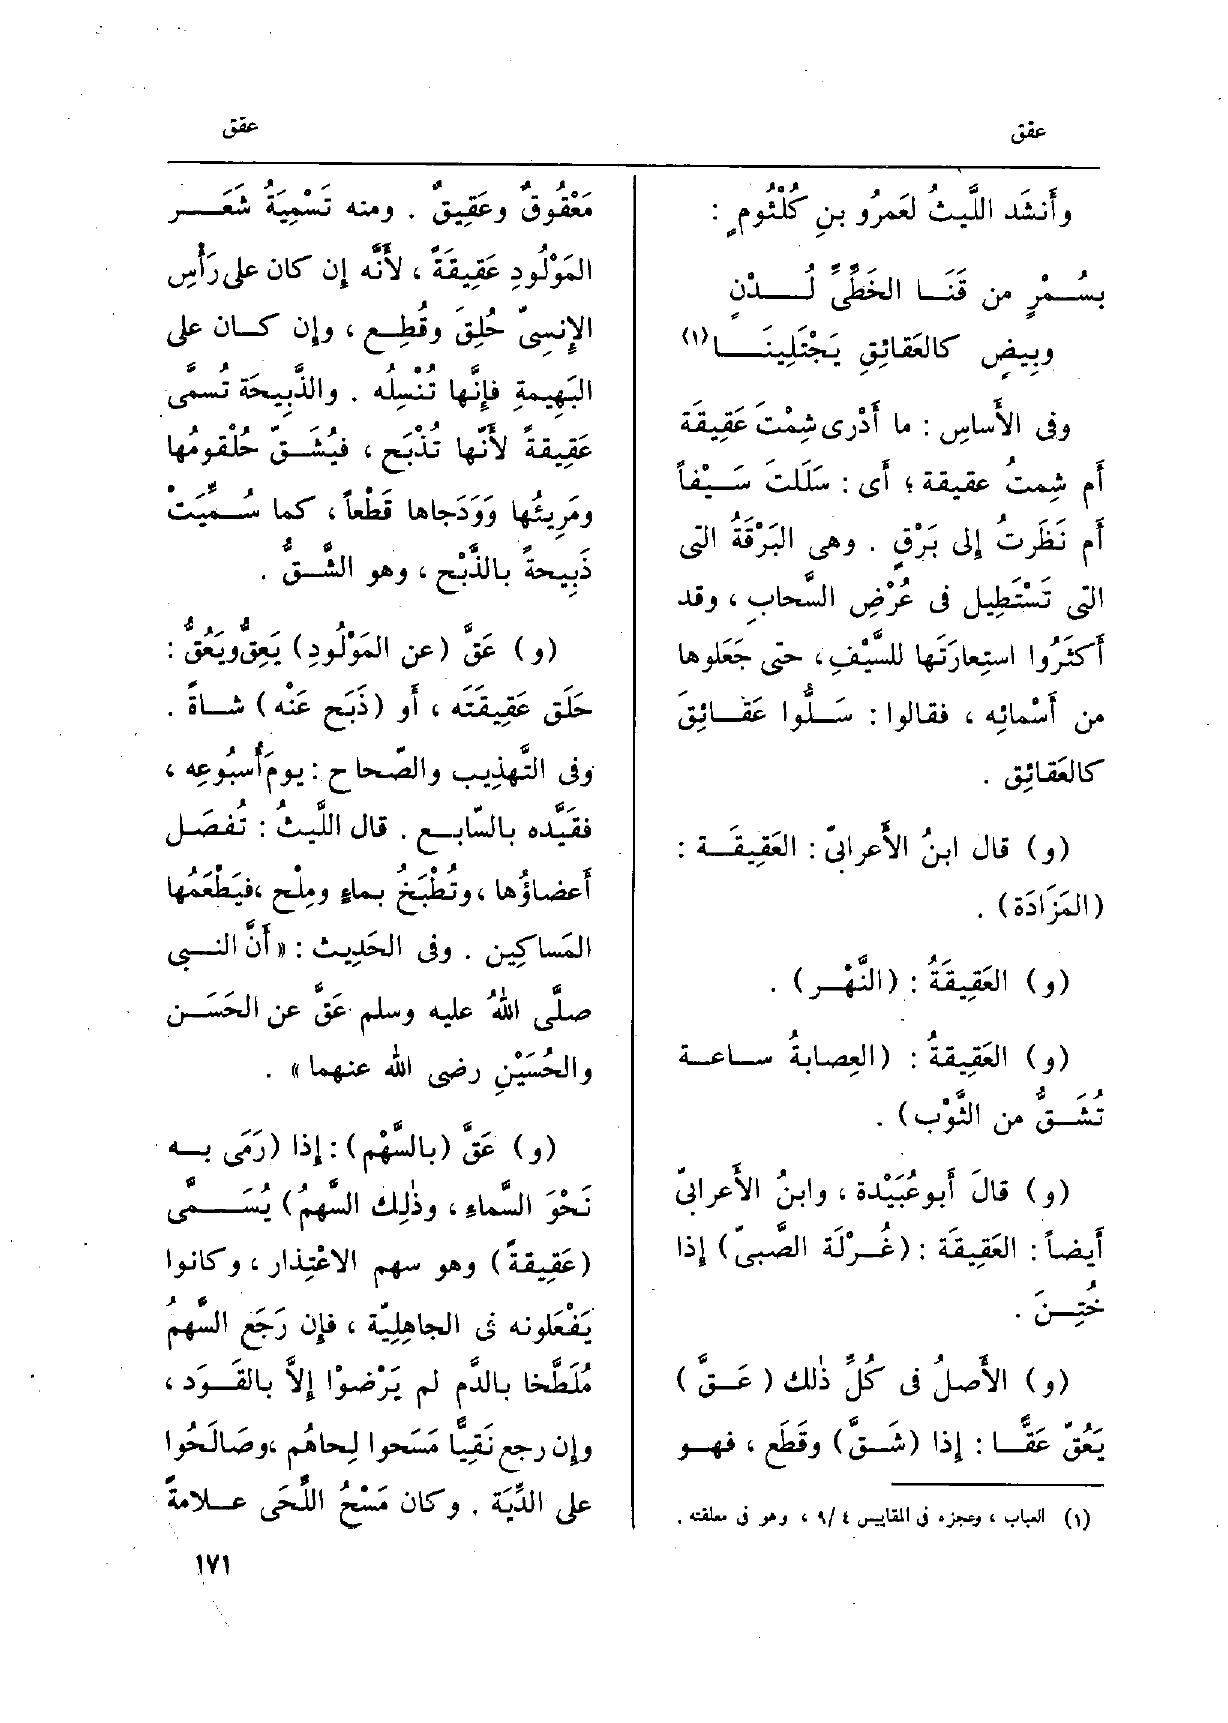 عقق
عقق
وأَنشَد اللَّيثُ لعَمرُو بنِ كُلْثُومٍ :
بسُمْرٍ من قَنَا الخَطِّىِّ لُدْنٍ
وبِيضٍ كالعَقائِقِ يَجْتَلِينَا (١)
وفى الأَساسِ : ما أَدْرِى شِمْتَ عَقِيقَة
أَم شِمتُ عقِيقة ؛ أَى : سَلَلتَ سَيْفاً
أَم نَظَرتُ إِلى بَرْقٍ . وهى البَرْقَةُ التى
التى تَسْتَطِيل فى عُرْضِ السَّحابِ ، وقد
أَكثَرُوا استِعارَتَها للسَّيْفِ ، حتى جَعَلوها
من أَسْمائِه ، فقالوا : سَلُّوا عَقَائِقَ
كالعَقائِق .
(و) قال ابنُ الأَعرابىّ : العَقِيقَة :
(المَزَادَة) .
(و) العَقِيقَةُ : (النَّهْر) .
(و) العَقِيقةُ : (العِصابةُ ساعة
تُشَقُّ من الثَّوْب) .
(و) قالَ أَبوعُبَيْدة ، وابنُ الأَعرابىّ
أَيضاً : العَقِيقَة : (غُرْلَة الصَّبىّ) إِذا
خُتِنَ .
(و) الأَصلُ فى كُلِّ ذٰلك (عَقَّ)
يَعُقّ عَقًّا : إِذا (شَقَّ) وقَطَع ، فهو
(١) العباب ، وعجزه فى المقاييس ٤ /٩ ، وهو فى معلقته .
مَعْقُوقٌ وعَقِيقٌ . ومنه تَسْمِيَةُ شَعَر
المَوْلُودِ عَقِيقَةً ، لأَنَّه إِن كان على رَأْسِ
الإِنسِىّ حُلِقَ وقُطِع ، وإِن كان على
البَهِيمةِ فإِنَّها تُنْسِلُه . والذَّبِيحَة تُسمَّى
عَقِيقةً لأَنَّها تُذْبَح ، فيُشَقّ حُلْقومُها
ومَرِيئُها وَوَدَجاها قَطْعاً ، كما سُمِّيَتْ
ذَبِيحةً بالذَّبْح ، وهو الشَّقُّ .
(و) عَقَّ (عن المَوْلُودِ) يَعِقُّ ويَعُقُّ :
حَلَق عَقِيقَتَه ، أَو (ذَبَح عَنْه) شاةً .
وفى التَّهذِيب والصّحاح : يوم أُسبُوعِه ،
فقَيَّده بالسّابِع . قال اللَّيثُ : تُفصَل
أَعضاؤُها ، وتُطْبَخُ بماءٍ ومِلْح ، فيَطْعَمُها
المَساكِين . وفى الحَدِيث : «أَنَّ النبى
صلَّى اللهُ عليه وسلم عَقَّ عن الحَسَن
والحُسَيْنِ رضى الله عنهما» .
(و) عَقَّ (بالسَّهْم) : إِذا (رَمَى به
نَحْوَ السَّماءِ ، وذٰلِك السَّهمُ) يُسَمَّى
(عَقِيقةً) وهو سهم الاعْتِذار ، وكانوا
يَفْعَلونه فى الجاهِلِيّة ، فإِن رَجَع السَّهمُ
مُلَطَّخا بالدَّم لم يَرْضوْا إِلاَّ بالقَوَد ،
وإِن رجع نَقِيًّا مَسَحوا لِحاهُم ، وصَالَحُوا
على الدِّيَة . وكان مَسْحُ اللِّحَى علامةً
١٧١